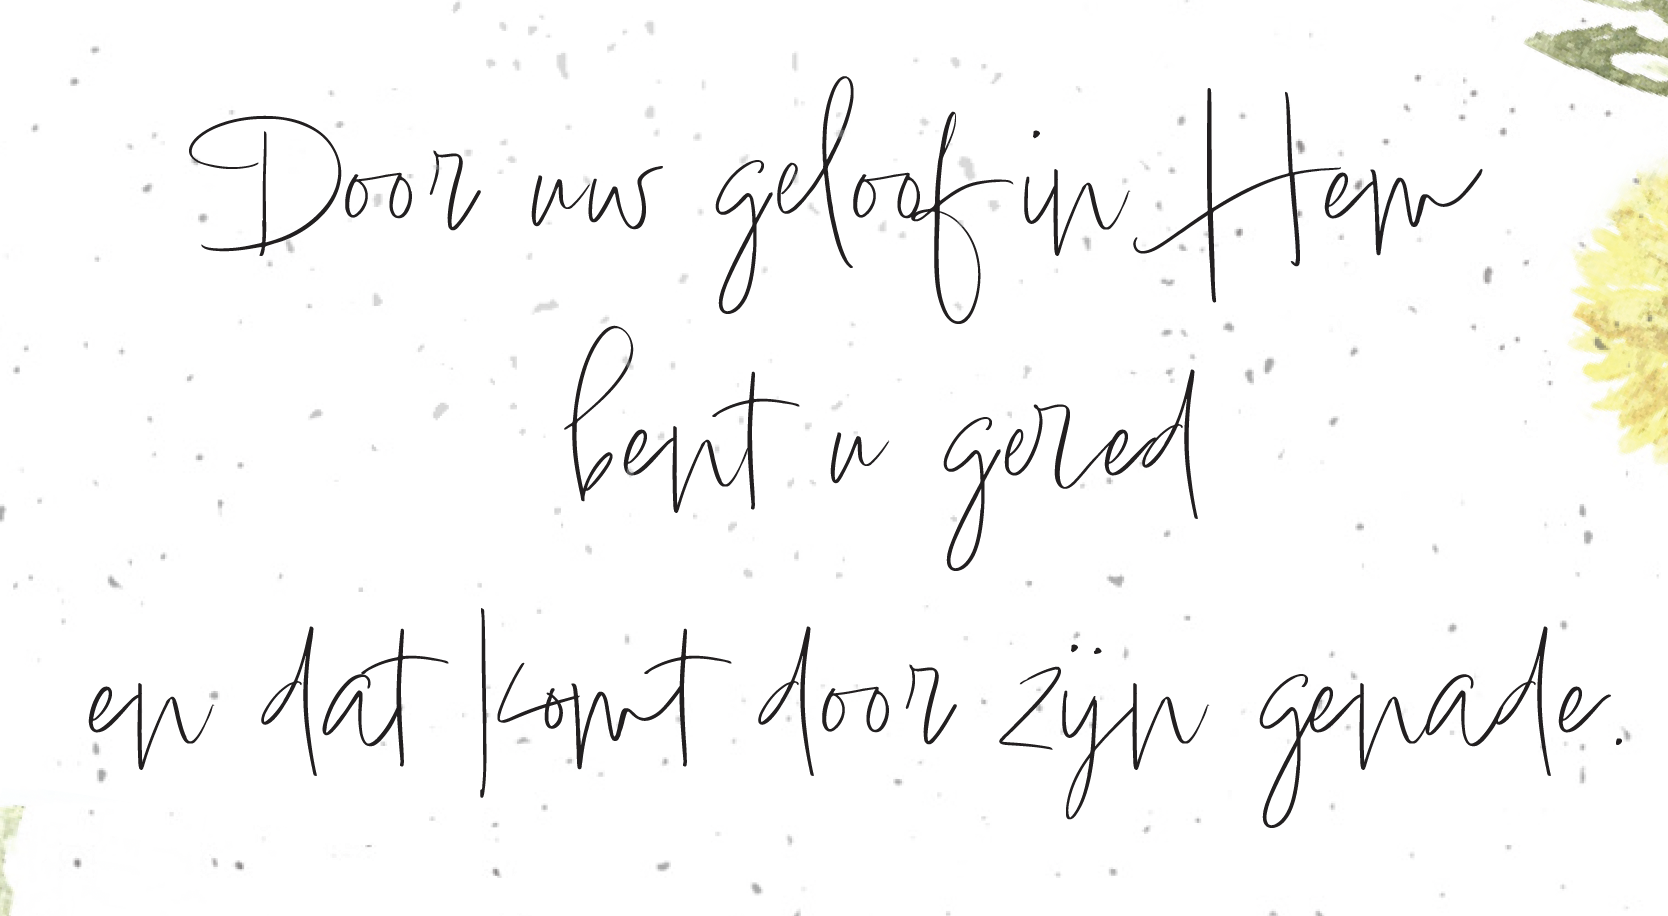 Door uw geloof in Hem
bent u gered
en dat komt door zijn genade.